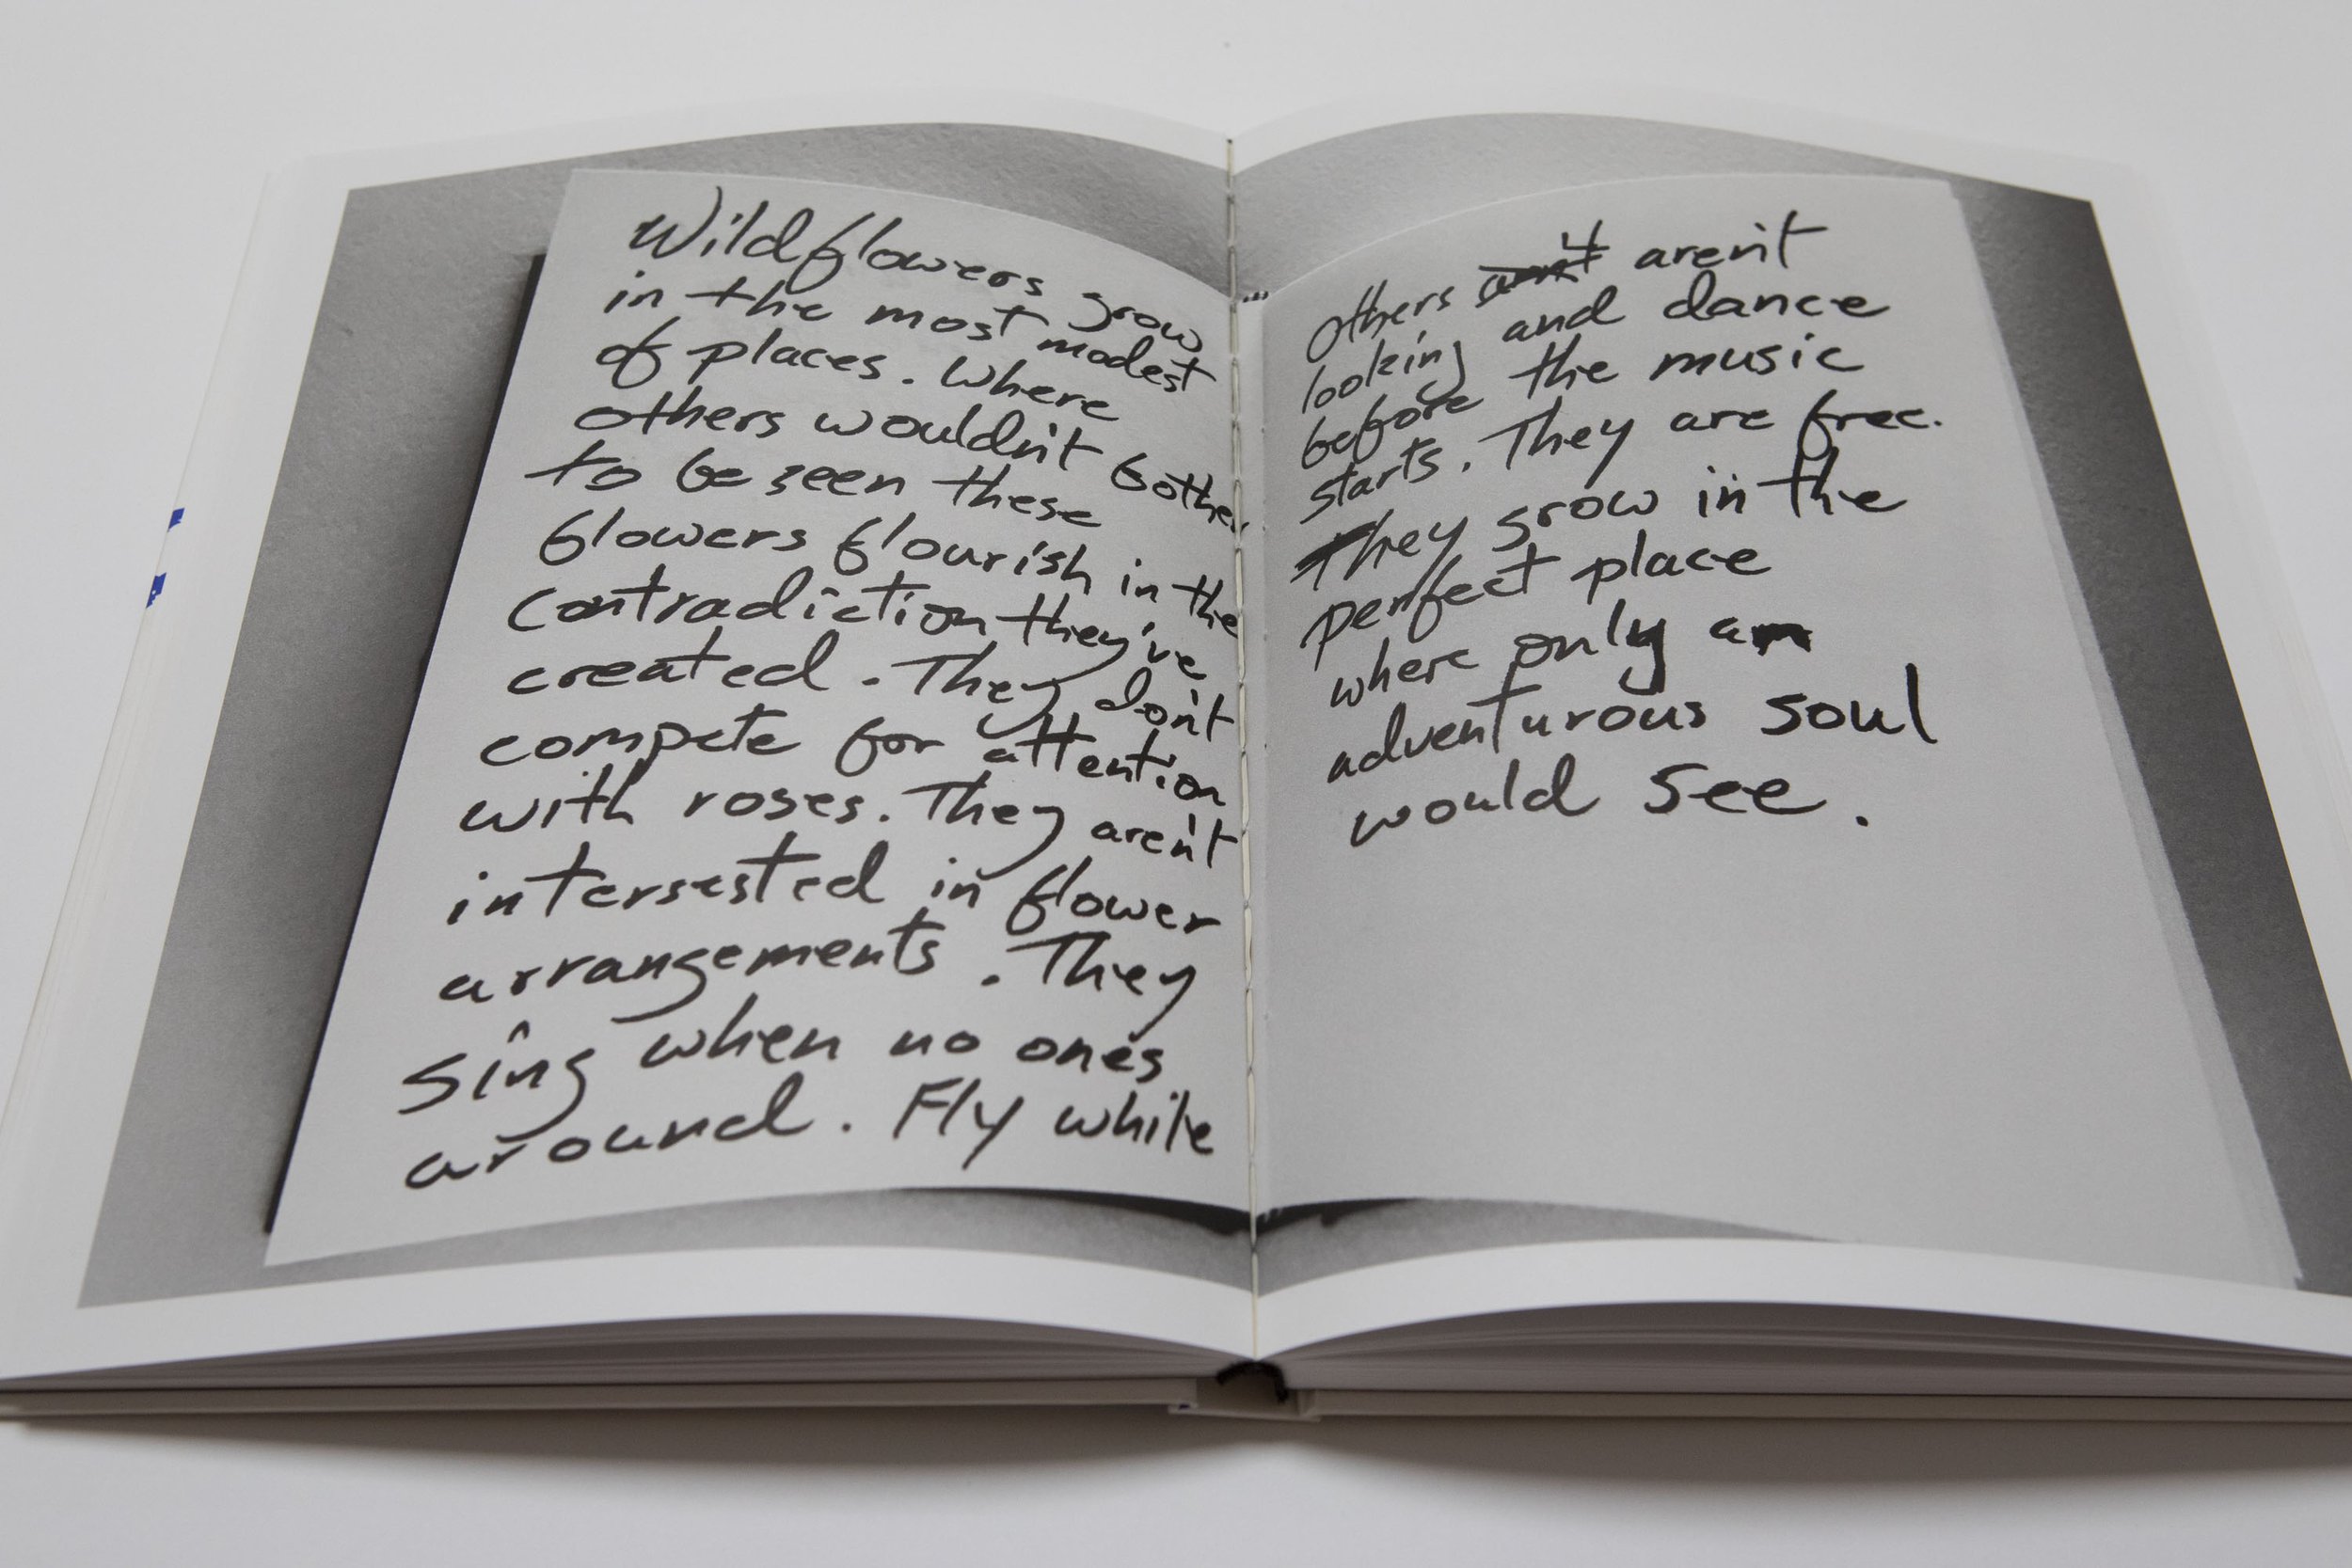 Wildflowers grow
in the most modest
of places. Where
others wouldn't bother
to be seen these
flowers flourish in the
contradiction they've
created. They don't
compete for attention
with roses. They aren't
intersested in flower
arrangements. They
sing when no ones
around. Fly while
others aren't
looking and dance
before the music
starts. They are free.
They grow in the
perfect place
where only a
adventurous soul
would see.